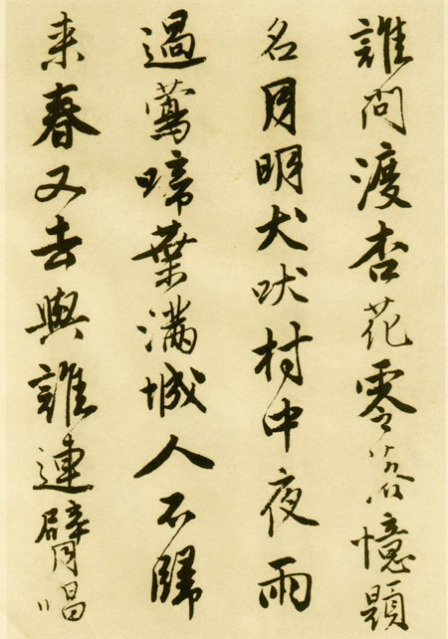 誰問渡杏花零落憶題
名月明犬吠村中夜雨
過鶯啼葉滿城人不歸
来春又去與誰連臂唱